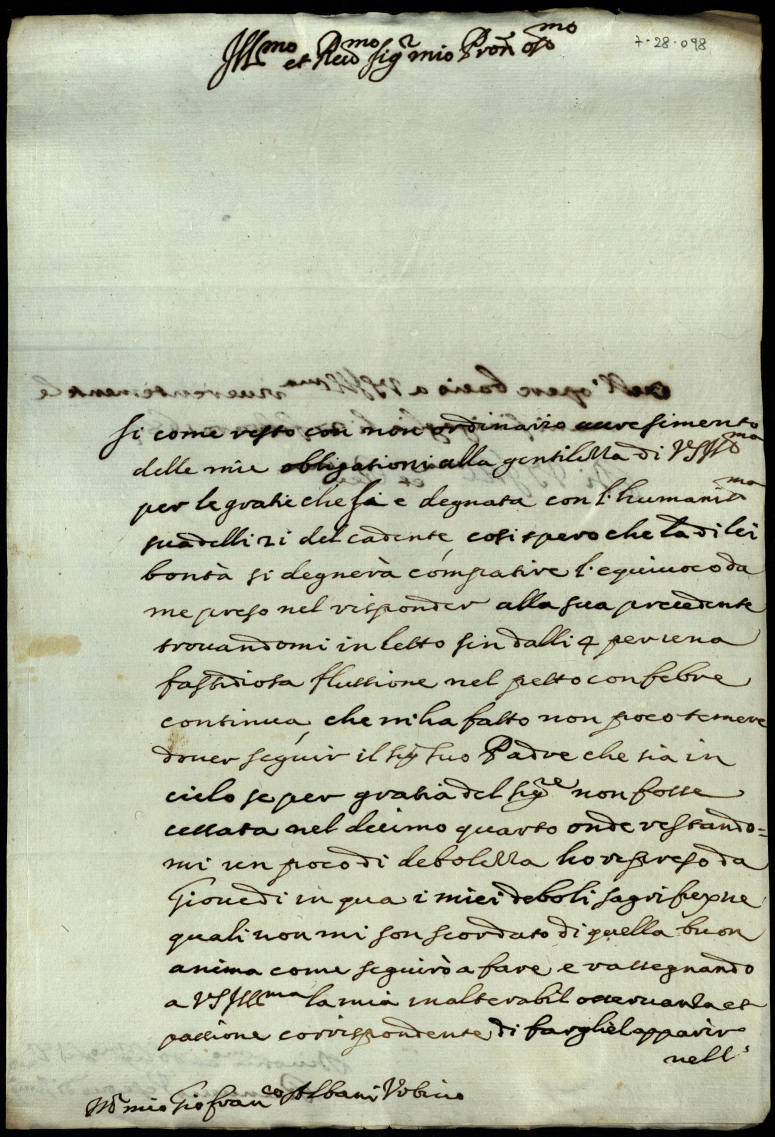 7-28-098
Ill.mo et Reu.mo Sig.r mio Pron oss.mo
Si come resto con non ordinario accrescimento
delle mie obligationi alla gentilezza di VS Ill.ma
per le gratie che si è degnata con l'humaniss.ma
sua delli 21 del cadente cosi spero che la di lei
bontà si degnerà compatire l'equiuoco da
me preso nel risponder alla sua precedente
trouandomi in letto sin dalli 4 per una
fastidiosa flussione nel petto con febre
continua, che mi ha fatto non poco temere
douer seguir il sig. suo Padre che sia in
cielo se per gratia del sig.re non fosse
cessata nel decimo quarto onde restando=
mi un poco di debolezza ho ripreso da
Giouedi in qua i miei deboli sagrifizij ne
quali non mi son scordato di quella buon
anima come seguirò a fare e rassegnando
a VS Ill.ma la mia inalterabil osseruanza et
passione corrispondente di fargliel apparir
nell'
Mo.r mio Gio fran.co Albani Vrbino